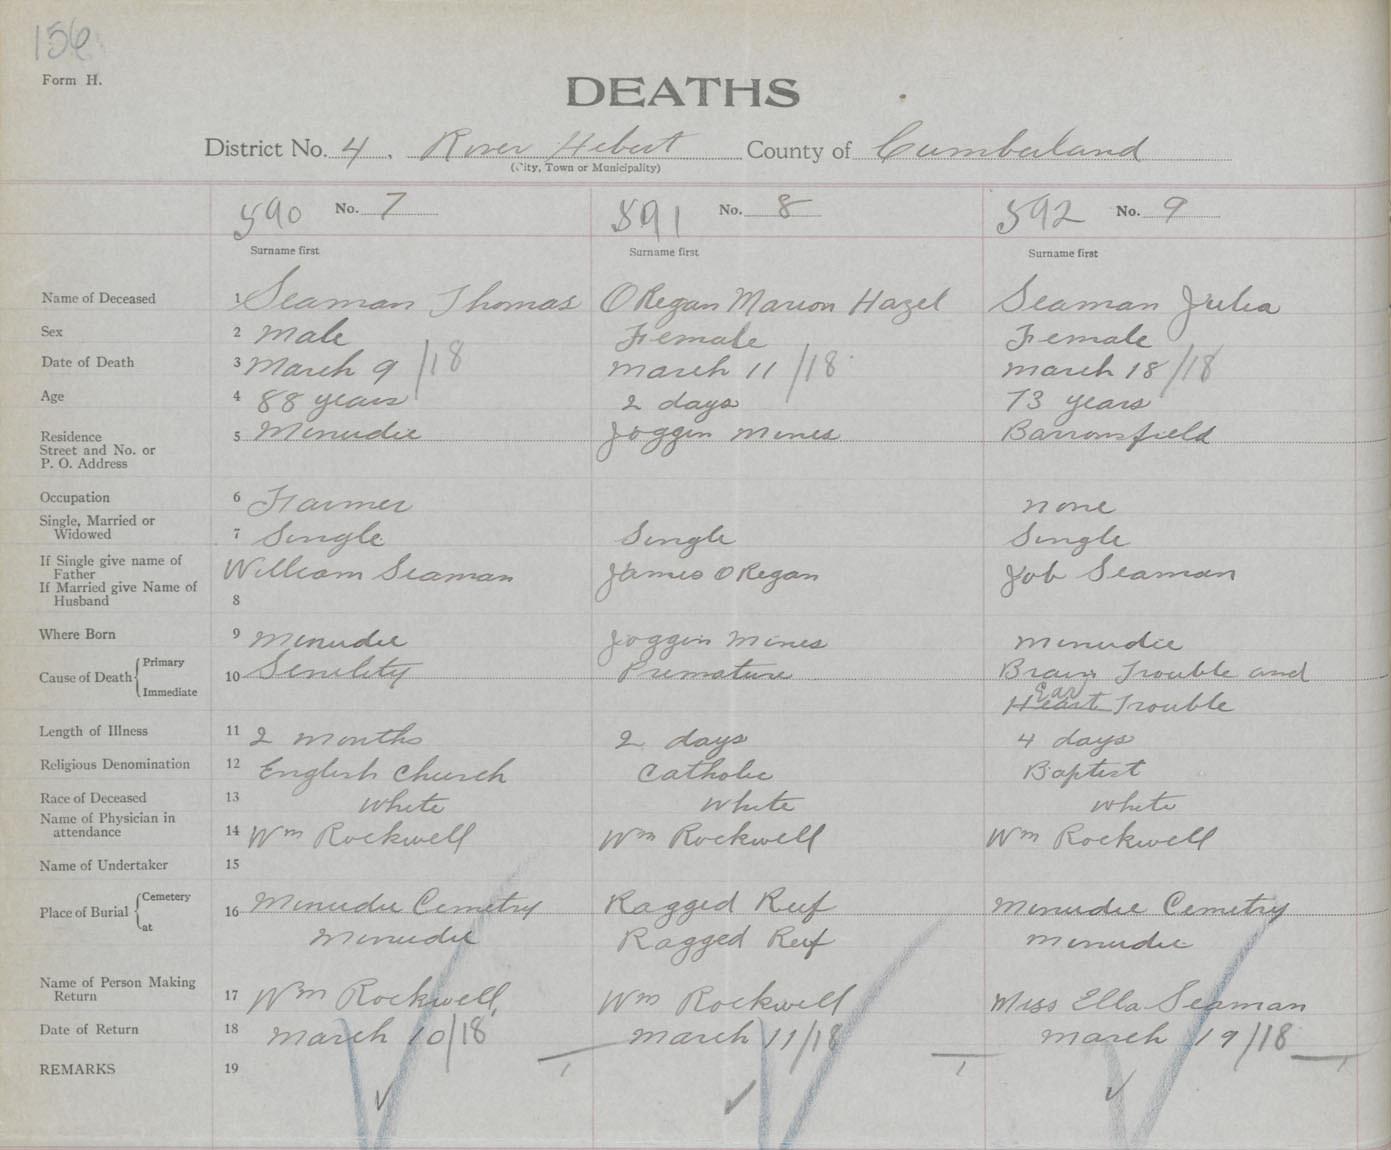 156
Form H.
DEATHS
District No. 4, River Hebert County of Cumberland
(City, Town or Municipality)
590 No. 7 591 No. 8 592 No. 9
Surname first Surname first Surname first
Name of Deceased 1 Seaman Thomas O Regan Marion Hazel Seaman Julia
Sex 2 Male Female Female
Date of Death 3 March 9 /18 March 11 /18 March 18 /18
Age 4 88 years 2 days 73 years
Residence 5 Minudie Joggin Mines Barronsfield
Street and No. or
P. O. Address
Occupation 6 Farmer none
Single, Married or
Widowed 7 Single Single Single
If Single give name of
Father William Seaman James O Regan Job Seaman
If Married give Name of
Husband 8
Where Born 9 Minudie Joggin Mines Minudie
Primary
Cause of Death 10 Senility Premature Brain Trouble and
Immediate Ear
Heart Trouble
Length of Illness 11 2 months 2 days 4 days
Religious Denomination 12 English Church Catholic Baptist
Race of Deceased 13 White White White
Name of Physician in
attendance 14 Wm Rockwell Wm Rockwell Wm Rockwell
Name of Undertaker 15
Cemetery
Place of Burial 16 Minudie Cemetry Ragged Reef Minudie Cemetry
at Minudie Ragged Reef Minudie
Name of Person Making
Return 17 Wm Rockwell Wm Rockwell Miss Ella Seaman
Date of Return 18 March 10/18 March 11/18 March 19/18
REMARKS 19